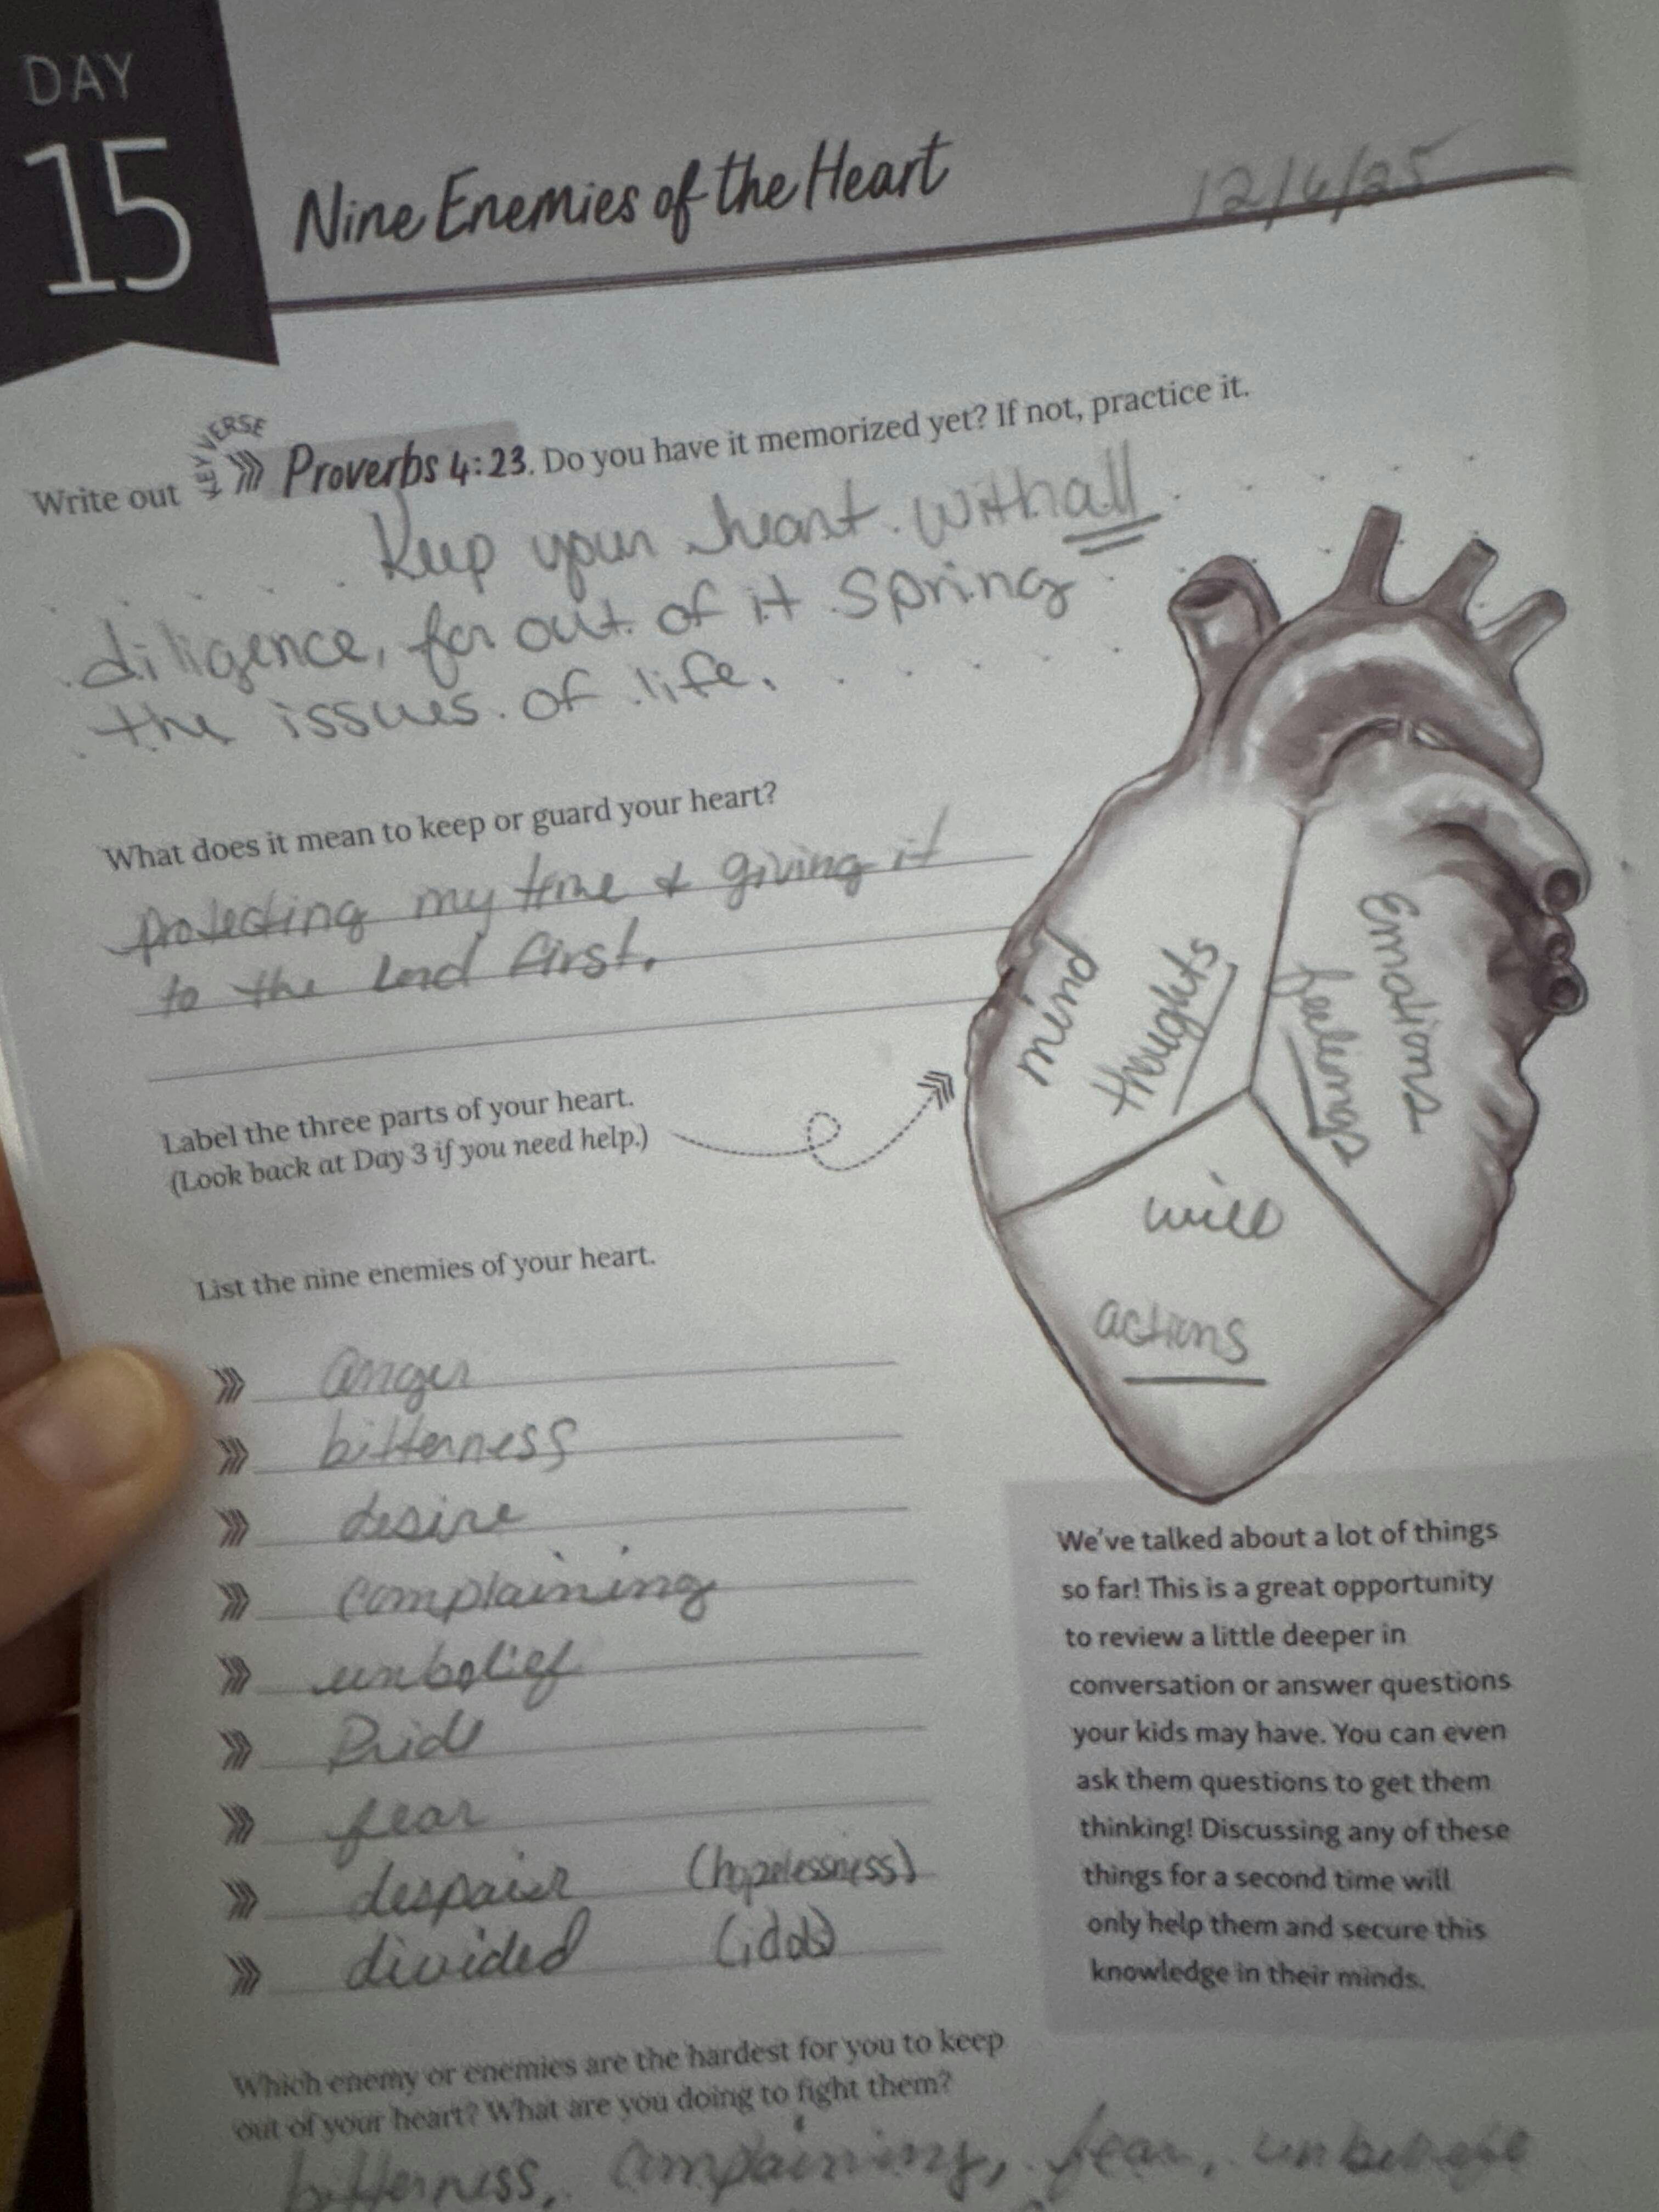 DAY
15
Nine Enemies of the Heart
12/4/25
KEY VERSE
Write out Proverbs 4:23. Do you have it memorized yet? If not, practice it.
Keep your heart with all
diligence, for out of it spring
the issues of life.
What does it mean to keep or guard your heart?
protecting my time & giving it
to the Lord first.
mind
thoughts
Emotions
feelings
will
actions
Label the three parts of your heart.
(Look back at Day 3 if you need help.)
List the nine enemies of your heart.
anger
bitterness
desire
complaining
unbelief
Pride
fear
despair (hopelessness)
divided (idols)
We've talked about a lot of things
so far! This is a great opportunity
to review a little deeper in
conversation or answer questions
your kids may have. You can even
ask them questions to get them
thinking! Discussing any of these
things for a second time will
only help them and secure this
knowledge in their minds.
Which enemy or enemies are the hardest for you to keep
out of your heart? What are you doing to fight them?
bitterness, complaining, fear,